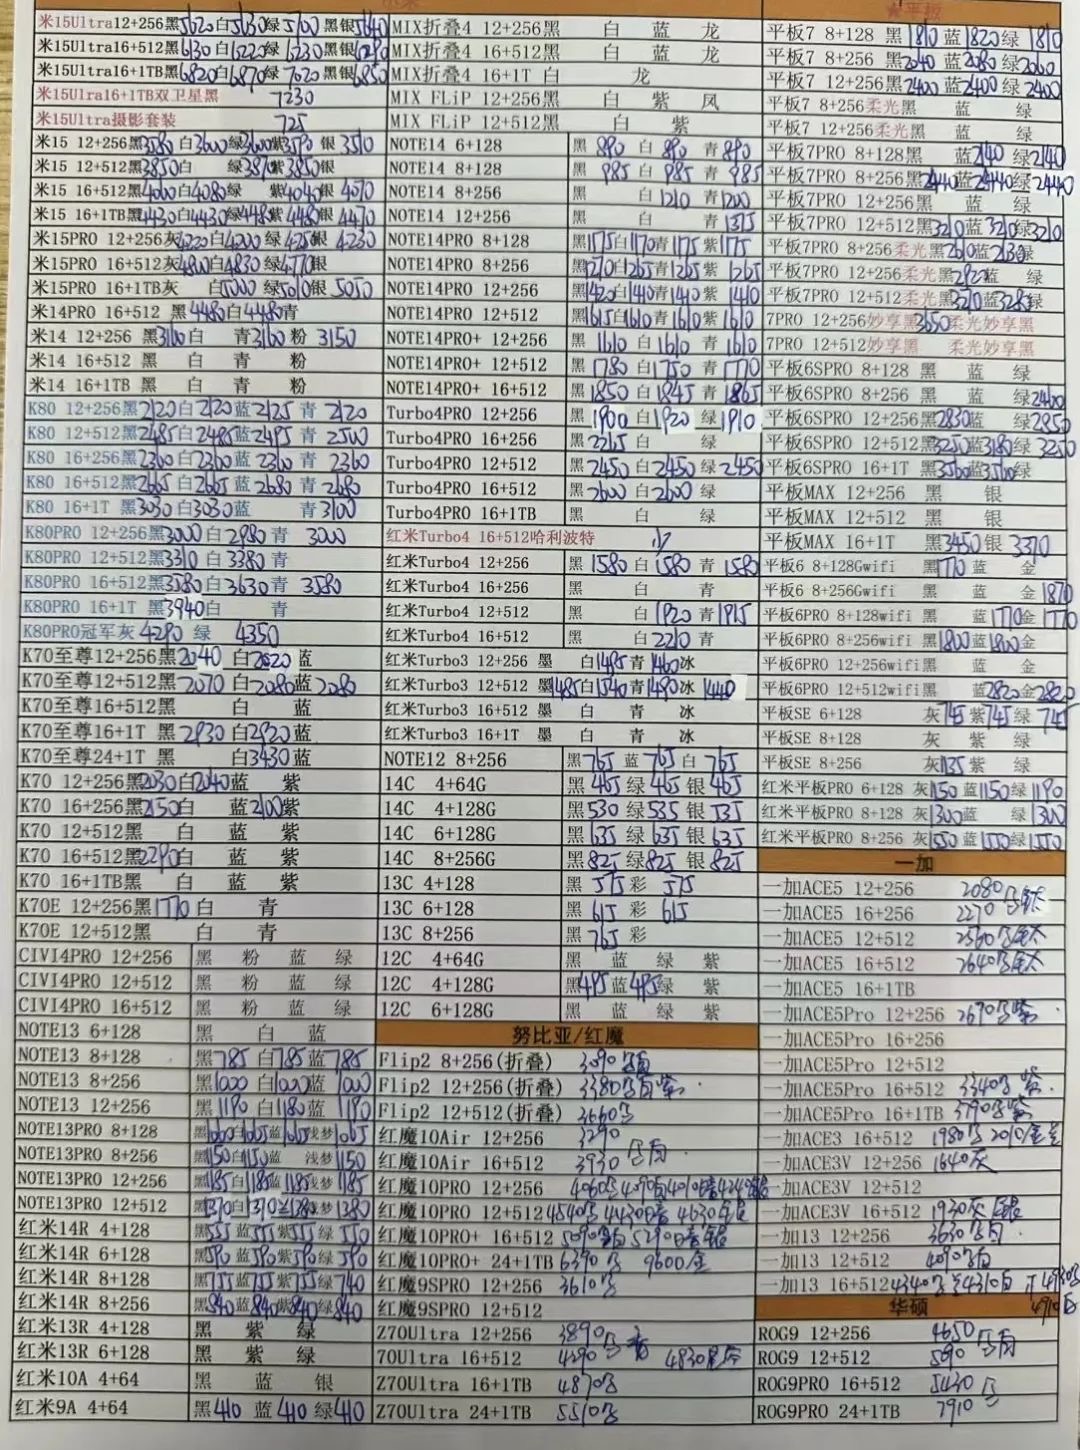 小米
米15Ultra12+256黑5620白5630绿5700黑银5640
米15Ultra16+512黑6130白6220绿6230黑银6290
米15Ultra16+1TB黑6820白6870绿7020黑银6850
米15Ulra16+1TB双卫星黑 7230
米15Ultra摄影套装 725
米15 12+256黑3580白3600绿3600紫3590 银 3510
米15 12+512黑3850白 绿3870紫3850银
米15 16+512黑4000白4080绿 紫4040银 4070
米15 16+1TB黑4430白4430绿4480紫4480银 4470
米15PRO 12+256灰4220白4200绿4250银 4230
米15PRO 16+512灰4800白4830绿4770银
米15PRO 16+1TB灰 白5000绿5010银5050
米14PRO 16+512 黑4480白4480青
米14 12+256 黑3160白 青3160粉 3150
米14 16+512 黑 白 青 粉
米14 16+1TB 黑 白 青 粉
K80 12+256黑2120白2120蓝2125 青 2120
K80 12+512黑2485白2485蓝2495 青 2500
K80 16+256黑2360白2360蓝2360 青 2360
K80 16+512黑2665白2665蓝2680 青 2680
K80 16+1T 黑3030白3030蓝 青3100
K80PRO 12+256黑3000白2980青 3000
K80PRO 12+512黑3310白3380青
K80PRO 16+512黑3580白3630青 3580
K80PRO 16+1T 黑3940白 青
K80PRO冠军灰 4290 绿 4350
K70至尊12+256黑2040 白2020蓝
K70至尊12+512黑2070 白2080蓝2080
K70至尊16+512黑 白 蓝
K70至尊16+1T 黑 2930白2920蓝
K70至尊24+1T 黑 白3430蓝
K70 12+256黑2030白2040蓝 紫
K70 16+256黑2150白 蓝2100紫
K70 12+512黑 白 蓝 紫
K70 16+512黑2290白 蓝 紫
K70 16+1TB黑 白 蓝 紫
K70E 12+256黑1770白 青
K70E 12+512黑 白 青
CIVI4PRO 12+256 黑 粉 蓝 绿
CIVI4PRO 12+512 黑 粉 蓝 绿
CIVI4PRO 16+512 黑 粉 蓝 绿
NOTE13 6+128 黑 白 蓝
NOTE13 8+128 黑785 白785蓝785
NOTE13 8+256 黑1000白1000蓝1000
NOTE13 12+256 黑1190白1180蓝1190
NOTE13PRO 8+128 黑1060白1065蓝1065浅梦1065
NOTE13PRO 8+256 黑1150白1150蓝 浅梦1150
NOTE13PRO 12+256 黑1185白1185蓝1185浅梦1185
NOTE13PRO 12+512 黑1370白1370蓝1380浅梦1380
红米14R 4+128 黑555蓝555紫555绿550
红米14R 6+128 黑590蓝590紫590绿590
红米14R 8+128 黑755蓝755紫755绿740
红米14R 8+256 黑840蓝840紫840绿840
红米13R 4+128 黑 紫 绿
红米13R 6+128 黑 紫 绿
红米10A 4+64 黑 蓝 银
红米9A 4+64 黑410 蓝410绿410
MIX折叠4 12+256黑 白 蓝 龙
MIX折叠4 16+512黑 白 蓝 龙
MIX折叠4 16+1T 白 龙
MIX FLiP 12+256黑 白 紫 凤
MIX FLiP 12+512黑 白 紫
NOTE14 6+128 黑 890 白 890 青 890
NOTE14 8+128 黑 985 白 985 青 985
NOTE14 8+256 黑 白1210青1200
NOTE14 12+256 黑 白 青1375
NOTE14PRO 8+128 黑1175白1170青1175紫1175
NOTE14PRO 8+256 黑1270白1265青1265紫 1265
NOTE14PRO 12+256 黑1420白1410青1410紫 1410
NOTE14PRO 12+512 黑1615白1610青1610紫 1610
NOTE14PRO+ 12+256 黑1610 白1610 青1610
NOTE14PRO+ 12+512 黑1780 白1750 青1770
NOTE14PRO+ 16+512 黑1850 白1845 青1865
Turbo4PRO 12+256 黑1900 白1920 绿1910
Turbo4PRO 16+256 黑2265白 绿
Turbo4PRO 12+512 黑2450白2450绿2450
Turbo4PRO 16+512 黑2600白2600绿
Turbo4PRO 16+1TB 黑 白 绿
红米Turbo4 16+512哈利波特
红米Turbo4 12+256 黑1580白1580青1580
红米Turbo4 16+256 黑 白 青
红米Turbo4 12+512 黑 白1920青1915
红米Turbo4 16+512 黑 白2210青
红米Turbo3 12+256 墨 白1495青1460冰
红米Turbo3 12+512 墨1485白1540青1490冰1440
红米Turbo3 16+512 墨 白 青 冰
红米Turbo3 16+1T 墨 白 青 冰
NOTE12 8+256 黑765蓝765白765
14C 4+64G 黑465绿465银465
14C 4+128G 黑530绿535银535
14C 6+128G 黑635绿635银635
14C 8+256G 黑825绿825银825
13C 4+128 黑 575 彩 575
13C 6+128 黑 615 彩 615
13C 8+256 黑 765 彩
12C 4+64G 黑 蓝 绿 紫
12C 4+128G 黑495蓝495绿 紫
12C 6+128G 黑 蓝 绿 紫
努比亚/红魔
Flip2 8+256(折叠) 3090
Flip2 12+256(折叠) 3380
Flip2 12+512(折叠) 3660
红魔10Air 12+256 3290
红魔10Air 16+512 3930
红魔10PRO 12+256
红魔10PRO 12+512
红魔10PRO+ 16+512
红魔10PRO+ 24+1TB 6390 9600金
红魔9SPRO 12+256 3610
红魔9SPRO 12+512
Z70Ultra 12+256 3890
70Ultra 16+512 4290 4830
Z70Ultra 16+1TB 4870
Z70Ultra 24+1TB 5510
★平板
平板7 8+128 黑1810蓝1820绿1810
平板7 8+256 黑2040蓝2080绿2060
平板7 12+256 黑2400蓝2400绿2400
平板7 8+256柔光黑 蓝 绿
平板7 12+256柔光黑 蓝 绿
平板7PRO 8+128黑 蓝2140绿2140
平板7PRO 8+256黑2440蓝2440绿2440
平板7PRO 12+256黑 蓝 绿
平板7PRO 12+512黑3210蓝3210绿3210
平板7PRO 8+256柔光黑2610蓝2630绿
平板7PRO 12+256柔光黑2920蓝 绿
平板7PRO 12+512柔光黑3270蓝3285绿
7PRO 12+256妙享黑3650柔光妙享黑
7PRO 12+512妙享黑 柔光妙享黑
平板6SPRO 8+128 黑 蓝 绿
平板6SPRO 8+256 黑 蓝 绿2460
平板6SPRO 12+256黑2830蓝 绿2850
平板6SPRO 12+512黑3250蓝3180绿3250
平板6SPRO 16+1T 黑3560蓝3560绿
平板MAX 12+256 黑 银
平板MAX 12+512 黑 银
平板MAX 16+1T 黑3450银 3370
平板6 8+128Gwifi 黑1770蓝 金
平板6 8+256Gwifi 黑 蓝 金1870
平板6PRO 8+128wifi 黑 蓝1770金1770
平板6PRO 8+256wifi 黑1800蓝1800金
平板6PRO 12+256wifi黑 蓝 金
平板6PRO 12+512wifi黑 蓝2820金2820
平板SE 6+128 灰745紫745绿745
平板SE 8+128 灰 紫 绿
平板SE 8+256 灰1135紫 绿
红米平板PRO 6+128 灰1150蓝1150绿1190
红米平板PRO 8+128 灰1300蓝 绿1300
红米平板PRO 8+256 灰1550蓝1550绿1550
一加
一加ACE5 12+256 2080
一加ACE5 16+256 2270
一加ACE5 12+512 2560
一加ACE5 16+512 2640
一加ACE5 16+1TB
一加ACE5Pro 12+256 2670
一加ACE5Pro 16+256
一加ACE5Pro 12+512
一加ACE5Pro 16+512 3340
一加ACE5Pro 16+1TB 3790
一加ACE3 16+512 1980 2010
一加ACE3V 12+256 1640灰
一加ACE3V 12+512
一加ACE3V 16+512 1930灰
一加13 12+256 3630
一加13 12+512 4090
一加13 16+512
华硕
ROG9 12+256 4650
ROG9 12+512 5090
ROG9PRO 16+512 5430
ROG9PRO 24+1TB 7910